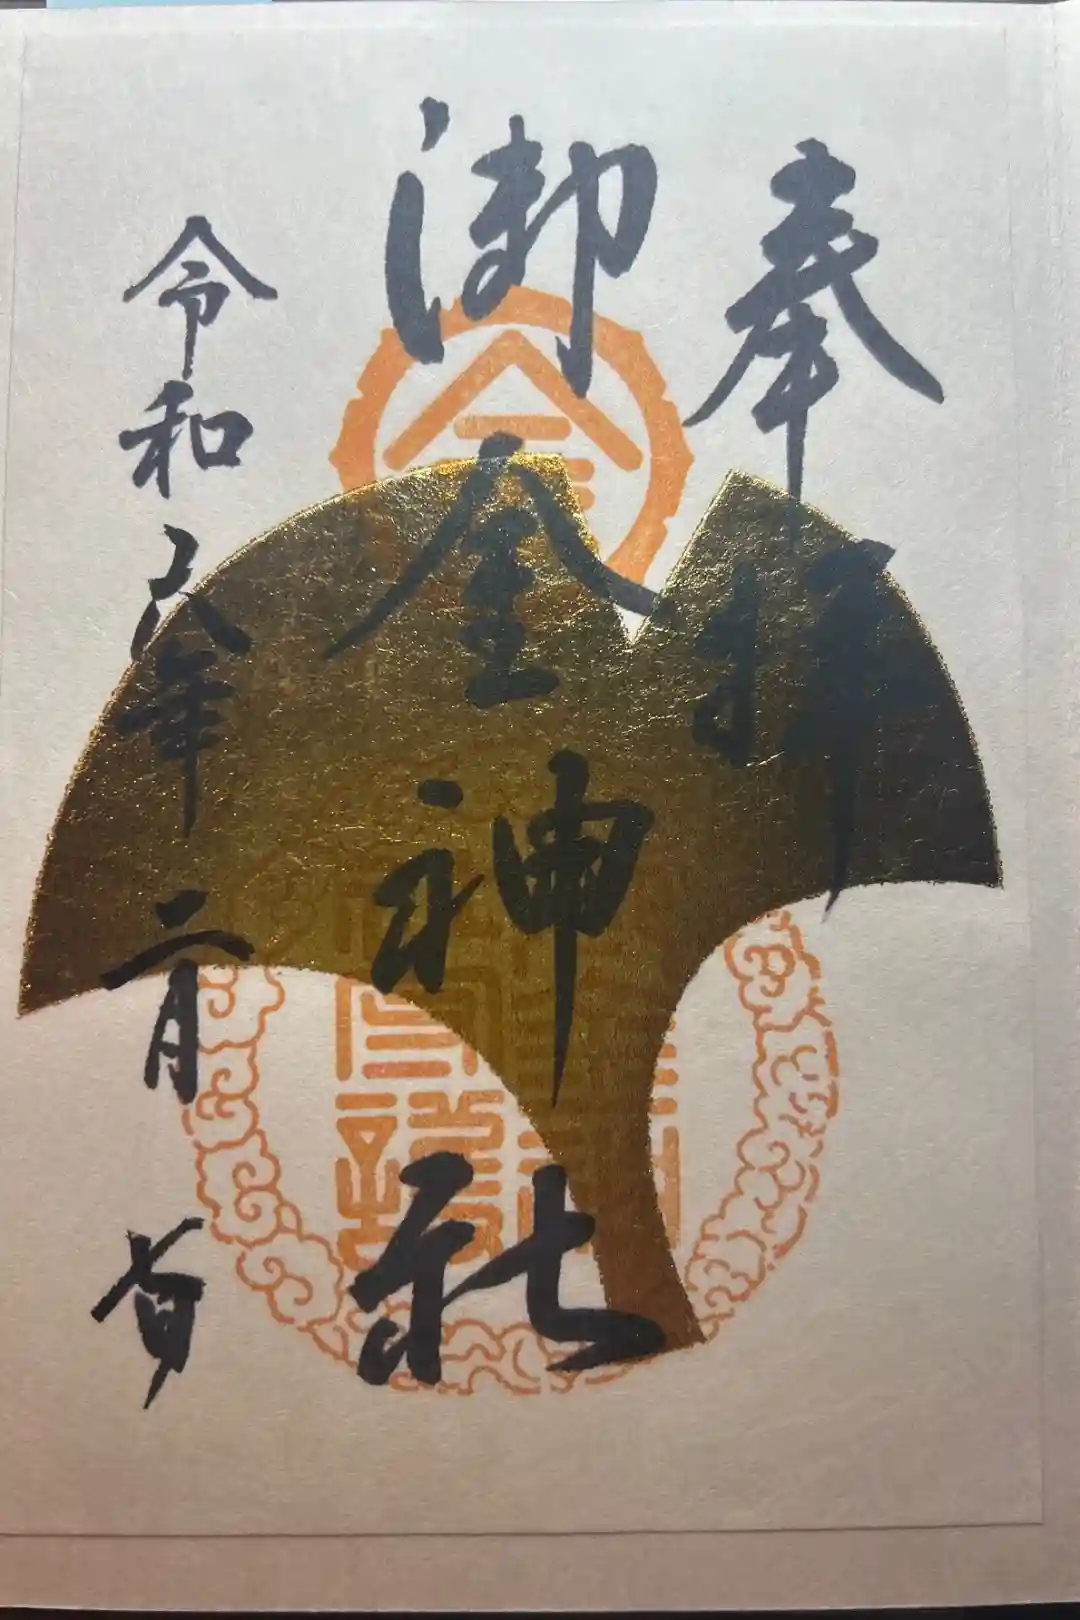 奉拝
御金神社
令和 年二月 日